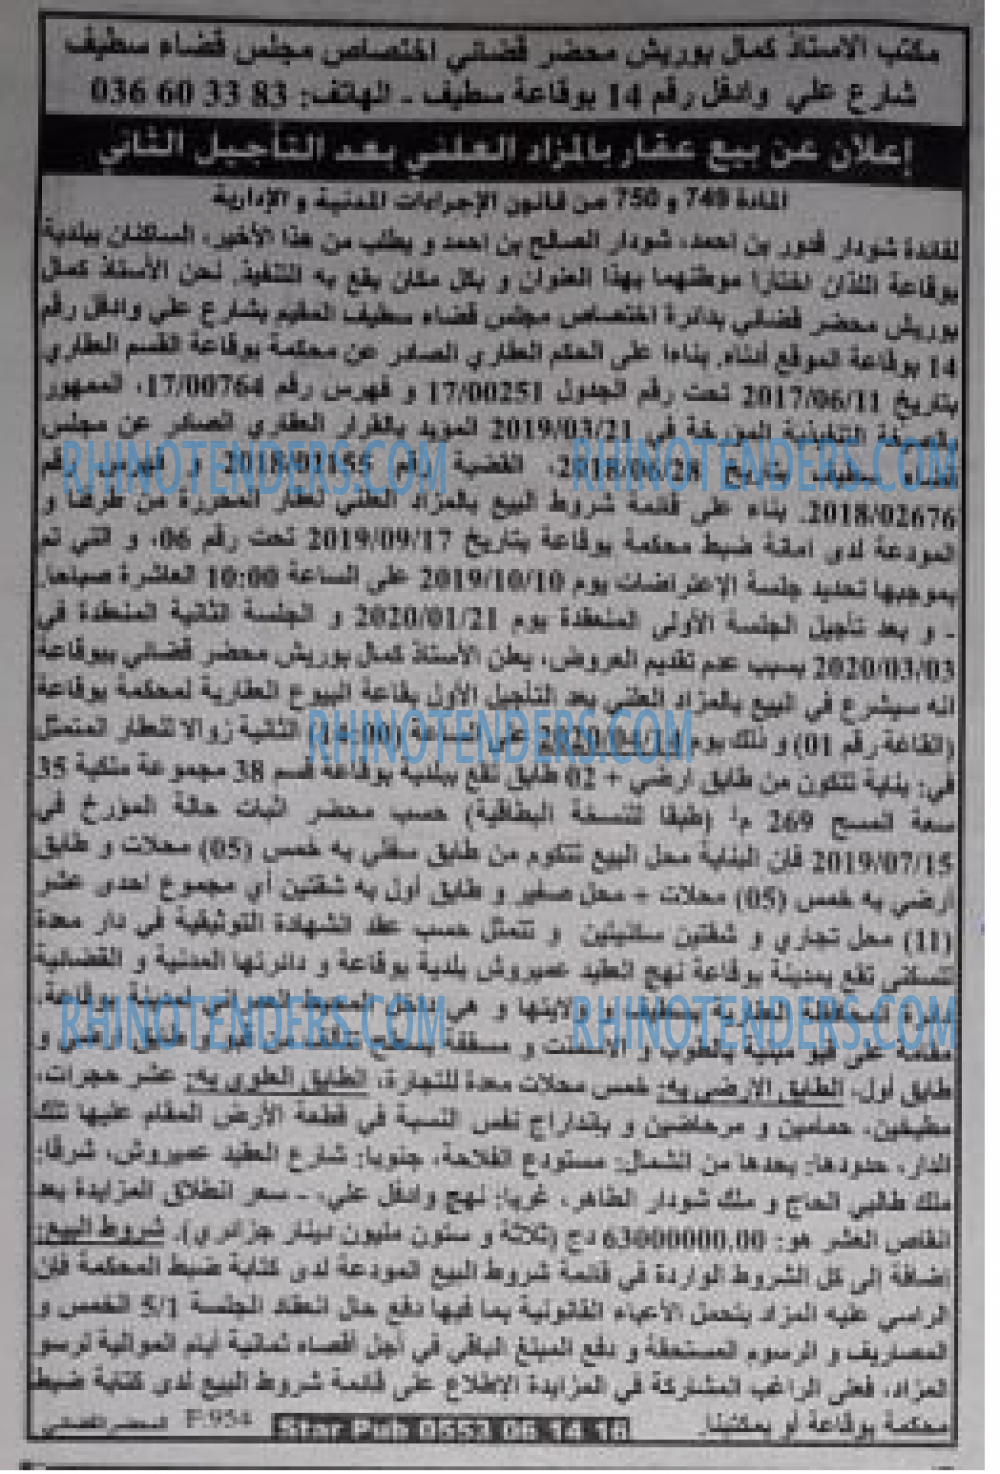 مكتب الاستاذ كمال بوريش محضر قضائي اختصاص مجلس قضاء سطيف
شارع علي وادفل رقم 14 بوقاعة سطيف - الهاتف: 83 33 60 036
إعلان عن بيع عقار بالمزاد العلني بعد التأجيل الثاني
المادة 749 و 750 من قانون الإجراءات المدنية و الإدارية
لفائدة شودار قدور بن احمد، شودار الصالح بن احمد و بطلب من هذا الأخير، الساكنان ببلدية
بوقاعة اللذان اختارا موطنهما بهذا العنوان و بكل مكان يقع به التنفيذ. نحن الأستاذ كمال
بوريش محضر قضائي بدائرة اختصاص مجلس قضاء سطيف المقيم بشارع علي وادفل رقم
14 بوقاعة الموقع أدناه. بناءا على الحكم العقاري الصادر عن محكمة بوقاعة القسم العقاري
بتاريخ 2017/06/11 تحت رقم الجدول 17/00251 و فهرس رقم 17/00764، الممهور
بالصيغة التنفيذية المؤرخة في 2019/03/21 المؤيد بالقرار العقاري الصادر عن مجلس
قضاء سطيف بتاريخ 2018/06/28، القضية رقم 2018/01155 و فهرس رقم
2018/02676. بناء على قائمة شروط البيع بالمزاد العلني لعقار المحررة من طرفنا و
المودعة لدى امانة ضبط محكمة بوقاعة بتاريخ 2019/09/17 تحت رقم 06، و التي تم
بموجبها تحديد جلسة الإعتراضات يوم 2019/10/10 على الساعة 10:00 العاشرة صباحا.
- و بعد تأجيل الجلسة الأولى المنعقدة يوم 2020/01/21 و الجلسة الثانية المنعقدة في
2020/03/03 بسبب عدم تقديم العروض، يعلن الأستاذ كمال بوريش محضر قضائي ببوقاعة
انه سيشرع في البيع بالمزاد العلني بعد التأجيل الأول بقاعة البيوع العقارية لمحكمة بوقاعة
(القاعة رقم 01) و ذلك يوم 2020/04/14 على الساعة (14:00) الثانية زوالا للعقار المتمثل
في: بناية تتكون من طابق أرضي + 02 طابق تقع ببلدية بوقاعة قسم 38 مجموعة ملكية 35
سعة المسح 269 م² (طبقا للنسخة البطاقية) حسب محضر اثبات حالة المؤرخ في
2019/07/15 فإن البناية محل البيع تتكوم من طابق سفلي به خمس (05) محلات و طابق
أرضي به خمس (05) محلات + محل صغير و طابق أول به شقتين أي مجموع احدى عشر
(11) محل تجاري و شقتين سكنيتين و تتمثل حسب عقد الشهادة التوثيقية في دار معدة
للسكنى تقع بمدينة بوقاعة نهج العقيد عميروش بلدية بوقاعة و دائرتها المدنية و القضائية
دائرة المحافظة العقارية بسطيف و ولايتها و هي داخل المحيط العمراني لمدينة بوقاعة،
مقامة على قبو مبنية بالطوب و الاسمنت و مسقفة بسطح تتألف من قبو و طابق أرضي و
طابق أول، الطابق الارضي به: خمس محلات معدة للتجارة، الطابق العلوي به: عشر حجرات،
مطبخين، حمامين و مرحاضين و باندراج نفس النسبة في قطعة الأرض المقام عليها تلك
الدار، حدودها: يحدها من الشمال: مستودع الفلاحة، جنوبا: شارع العقيد عميروش، شرقا:
ملك طالبي الحاج و ملك شودار الطاهر، غربا: نهج وادفل علي، - سعر انطلاق المزايدة بعد
انقاص العشر هو: 63000000.00 دج (ثلاثة و ستون مليون دينار جزائري). شروط البيع:
إضافة إلى كل الشروط الواردة في قائمة شروط البيع المودعة لدى كتابة ضبط المحكمة فإن
الراسي عليه المزاد يتحمل الأعباء القانونية بما فيها دفع حال انعقاد الجلسة 5/1 الخمس و
المصاريف و الرسوم المستحقة و دفع المبلغ الباقي في أجل أقصاه ثمانية أيام الموالية لرسو
المزاد، فعلى الراغب المشاركة في المزايدة الإطلاع على قائمة شروط البيع لدى كتابة ضبط
محكمة بوقاعة أو بمكتبنا.
Star Pub 0552 06 14 18 F:954 المحضر القضائي
RHINOTENDERS.COM RHINOTENDERS.COM
RHINOTENDERS.COM
RHINOTENDERS.COM RHINOTENDERS.COM